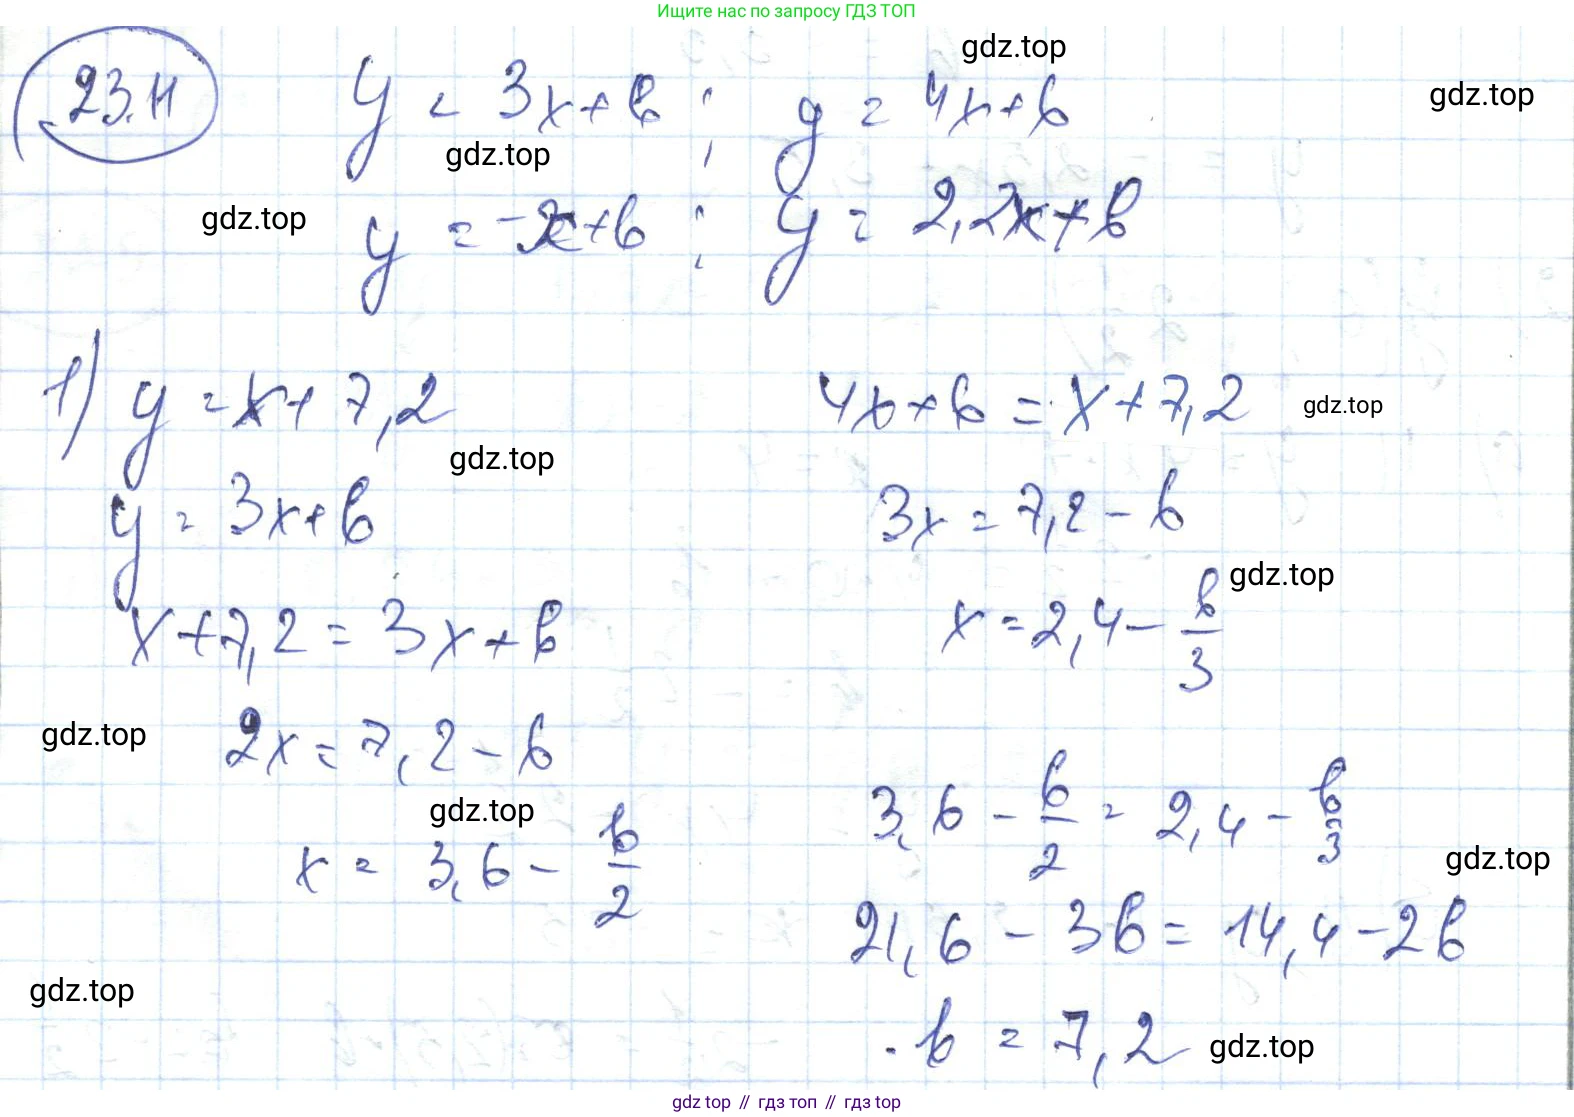 Ищите нас по запросу ГДЗ ТОП
23.11
y = 3x+b ; y = 4x+b
gdz.top
gdz.top
gdz.top
gdz.top
y = -x+b ; y = 2,2x+b
1) y = x+7,2
y = 3x+b
x+7,2 = 3x+b
2x = 7,2 - b
x = 3,6 - b/2
gdz.top
gdz.top
gdz.top
gdz.top
4x+b = x+7,2
gdz.top
3x = 7,2 - b
x = 2,4 - b/3
gdz.top
3,6 - b/2 = 2,4 - b/3
gdz.top
21,6 - 3b = 14,4 - 2b
b = 7,2
gdz.top
gdz top // гдз топ // гдз top